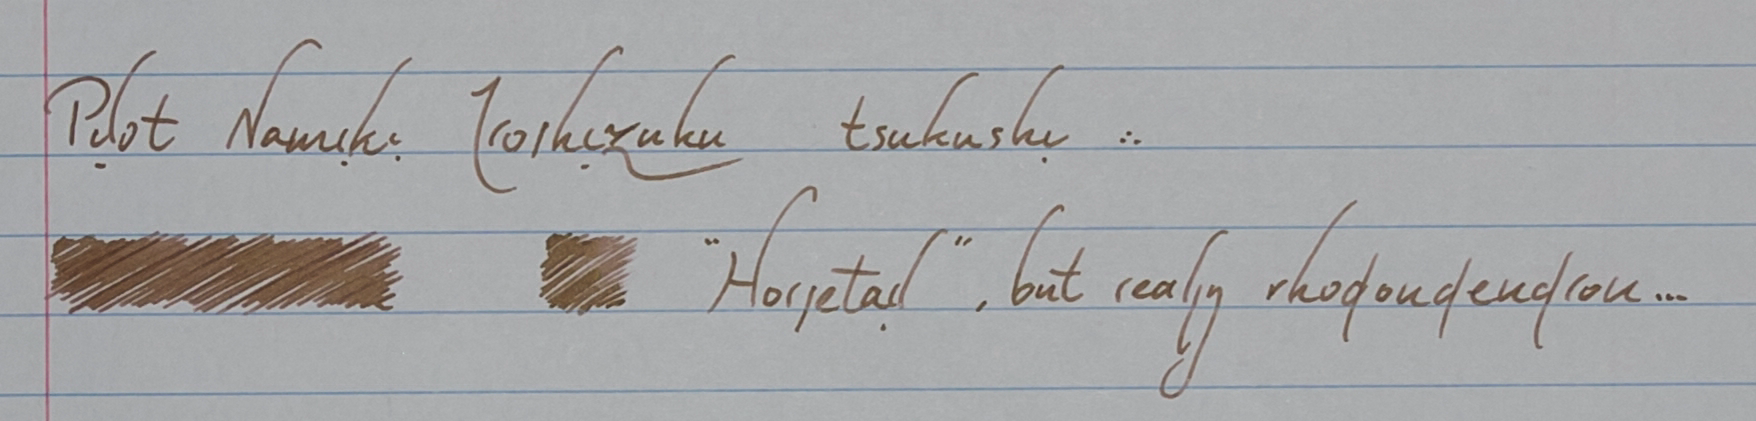 Pilot Namiki Iroshizuku tsukushi ∴
"Horsetail", but really rhodondendron...